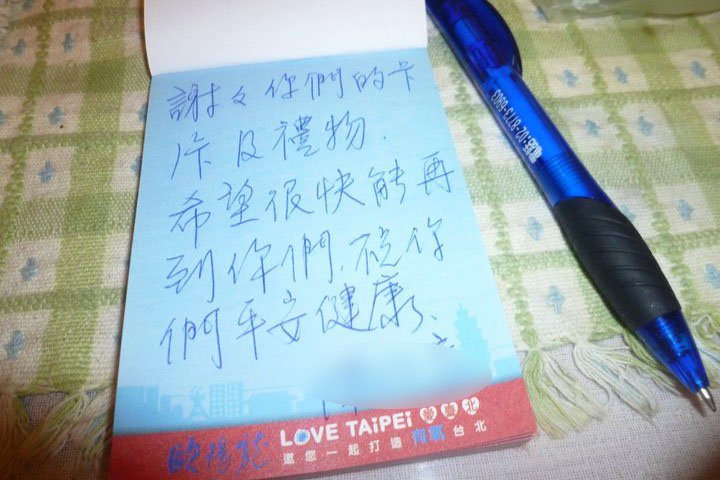 謝々你們的卡
片及禮物.
希望很快能再
到你們,祝你
們平安健康.
LOVE TAiPEi 愛臺北
邀您一起打造 有氧 台北
電話:02-8773-0903